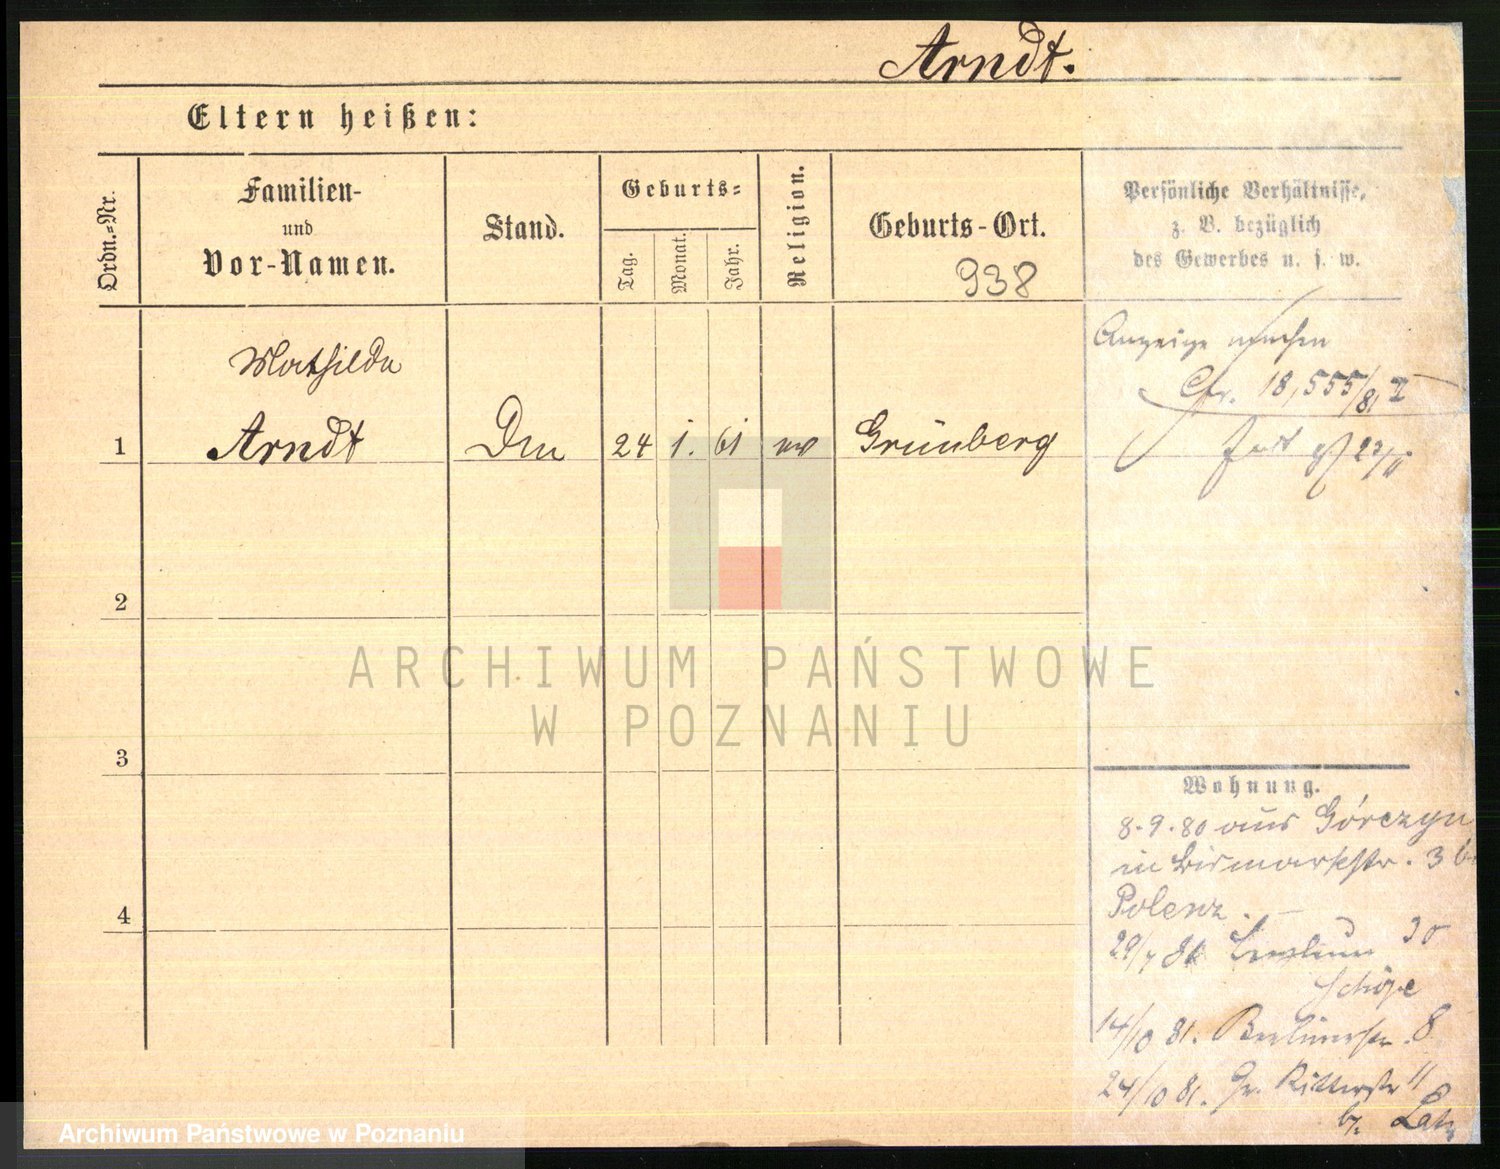 Arndt.
Eltern heißen:
Ordn.=Nr.
Familien-
und
Vor-Namen.
Stand.
Geburts=
Tag.
Monat.
Jahr.
Religion.
Geburts-Ort.
938
Persönliche Verhältnisse,
z. B. bezüglich
des Gewerbes u. s. w.
Mathilde
1 Arndt 24 1. 61 ev Grünberg
Anzeige machen
18,555/81 II
2
3
4
Wohnung.
8.9.80 aus Górczyn
in Bismarkstr. 3
Polenz.
29/7 81 30
14/10 81. Berlinerstr. 8
24/10 81. Gr. Ritterstr 11
ARCHIWUM PAŃSTWOWE
W POZNANIU
Archiwum Państwowe w Poznaniu